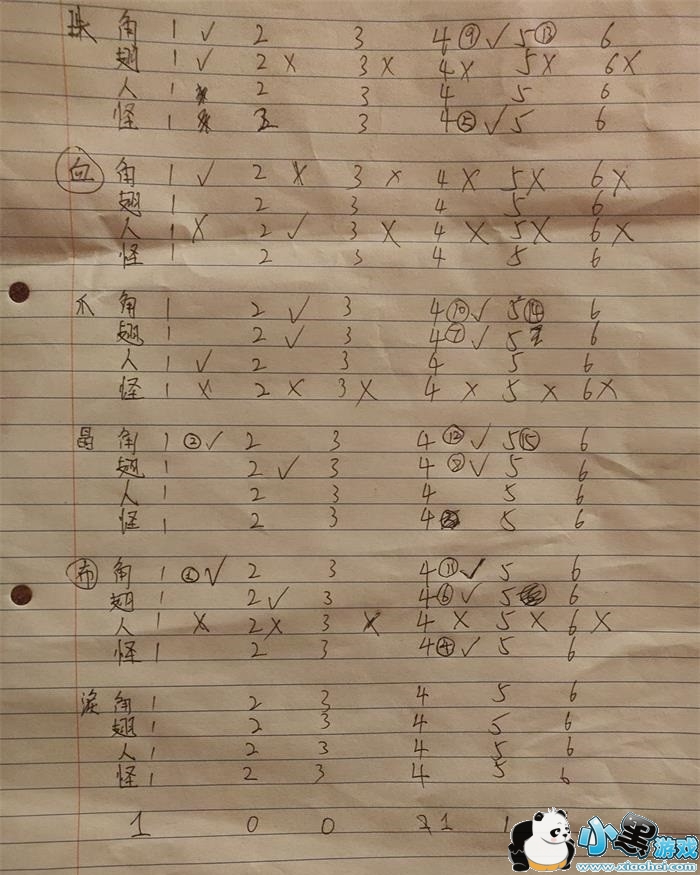 珠 角 1 ✓ 2 3 4 ⑨ ✓ 5 ⑬ 6
翅 1 ✓ 2 × 3 × 4 × 5 × 6 ×
人 1 2 3 4 5 6
怪 1 2 3 4 ⑤ ✓ 5 6
血 角 1 ✓ 2 × 3 × 4 × 5 × 6 ×
翅 1 2 3 4 5 6
人 1 × 2 ✓ 3 × 4 × 5 × 6 ×
怪 1 2 3 4 5 6
爪 角 1 2 ✓ 3 4 ⑩ ✓ 5 ⑭ 6
翅 1 2 ✓ 3 4 ⑦ ✓ 5 6
人 1 ✓ 2 3 4 5 6
怪 1 × 2 × 3 × 4 × 5 × 6 ×
晶 角 1 ② ✓ 2 3 4 ⑫ ✓ 5 ⑮ 6
翅 1 2 ✓ 3 4 ⑧ ✓ 5 6
人 1 2 3 4 5 6
怪 1 2 3 4 5 6
布 角 1 ✓ 2 3 4 ⑪ ✓ 5 6
翅 1 2 ✓ 3 4 ⑥ ✓ 5 6
人 1 × 2 × 3 × 4 × 5 × 6 ×
怪 1 2 3 4 ④ ✓ 5 6
泪 角 1 2 3 4 5 6
翅 1 2 3 4 5 6
人 1 2 3 4 5 6
怪 1 2 3 4 5 6
1 0 0 1 1
小黑游戏
www.xiaohei.com